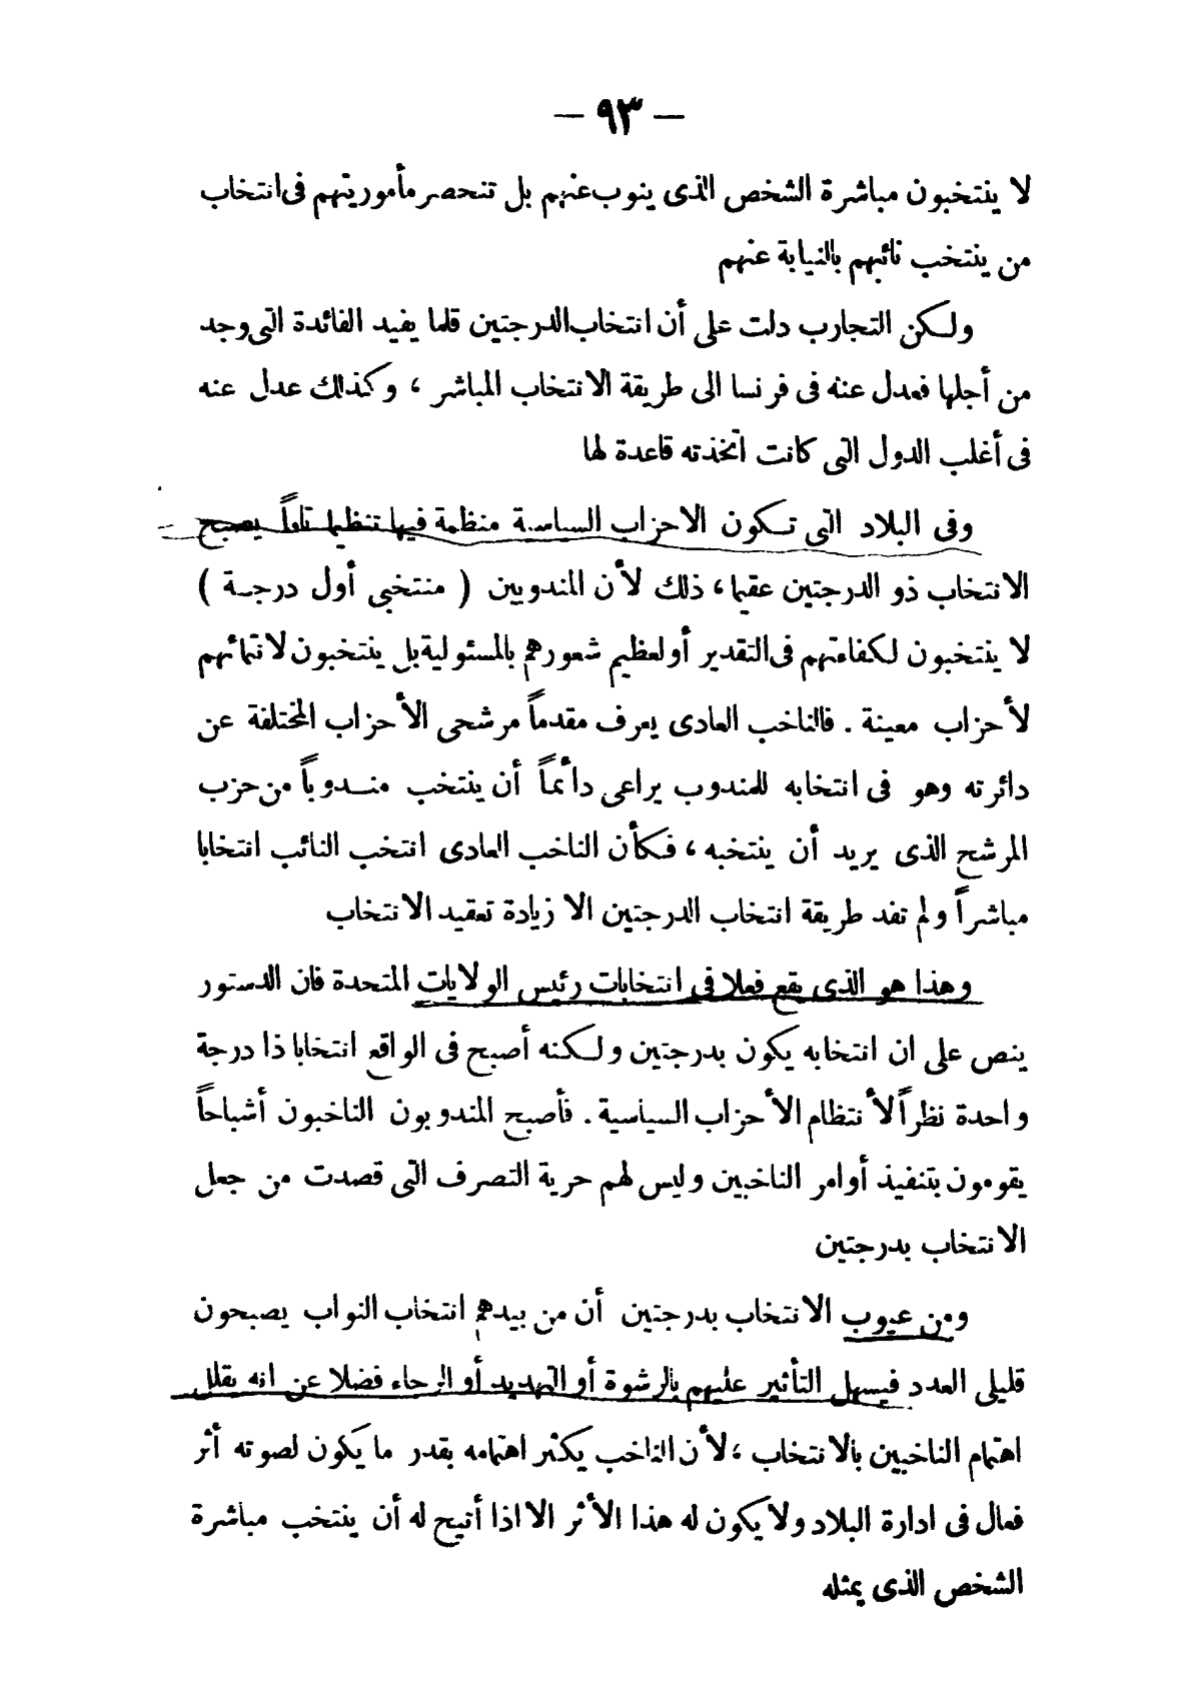 — ٩٣ —
لا ينتخبون مباشرة الشخص الذى ينوب عنهم بل تنحصر مأموريتهم فى انتخاب
من ينتخب نائبهم بالنيابة عنهم
ولكن التجارب دلت على أن انتخاب الدرجتين قلما يفيد الفائدة التى وجد
من أجلها فعدل عنه فى فرنسا الى طريقة الانتخاب المباشر ، وكذلك عدل عنه
فى أغلب الدول التى كانت اتخذته قاعدة لها
وفى البلاد التى تكون الاحزاب السياسة منظمة فيها تنظيما تاماً يصبح
الانتخاب ذو الدرجتين عقيما ، ذلك لأن المندوبين ( منتخبى أول درجة )
لا ينتخبون لكفاءتهم فى التقدير أو لعظيم شعورهم بالمسئولية بل ينتخبون لانتمائهم
لأحزاب معينة . فالناخب العادى يعرف مقدماً مرشحى الأحزاب المختلفة عن
دائرته وهو فى انتخابه للمندوب يراعى دائماً أن ينتخب مندوباً من حزب
المرشح الذى يريد أن ينتخبه ، فكأن الناخب العادى انتخب النائب انتخابا
مباشراً ولم تفد طريقة انتخاب الدرجتين الا زيادة تعقيد الانتخاب
وهذا هو الذى يقع فعلا فى انتخابات رئيس الولايات المتحدة فان الدستور
ينص على ان انتخابه يكون بدرجتين ولكنه أصبح فى الواقع انتخابا ذا درجة
واحدة نظراً لأنتظام الأحزاب السياسية . فأصبح المندوبون الناخبون أشباحاً
يقومون بتنفيذ أوامر الناخبين وليس لهم حرية التصرف التى قصدت من جعل
الانتخاب بدرجتين
ومن عيوب الانتخاب بدرجتين أن من بيدهم انتخاب النواب يصبحون
قليلى العدد فيسهل التأثير عليهم بالرشوة أو التهديد أو الرجاء فضلا عن انه يقلل
اهتمام الناخبين بالانتخاب ، لأن الناخب يكثر اهتمامه بقدر ما يكون لصوته أثر
فعال فى ادارة البلاد ولا يكون له هذا الأثر الا اذا أتيح له أن ينتخب مباشرة
الشخص الذى يمثله